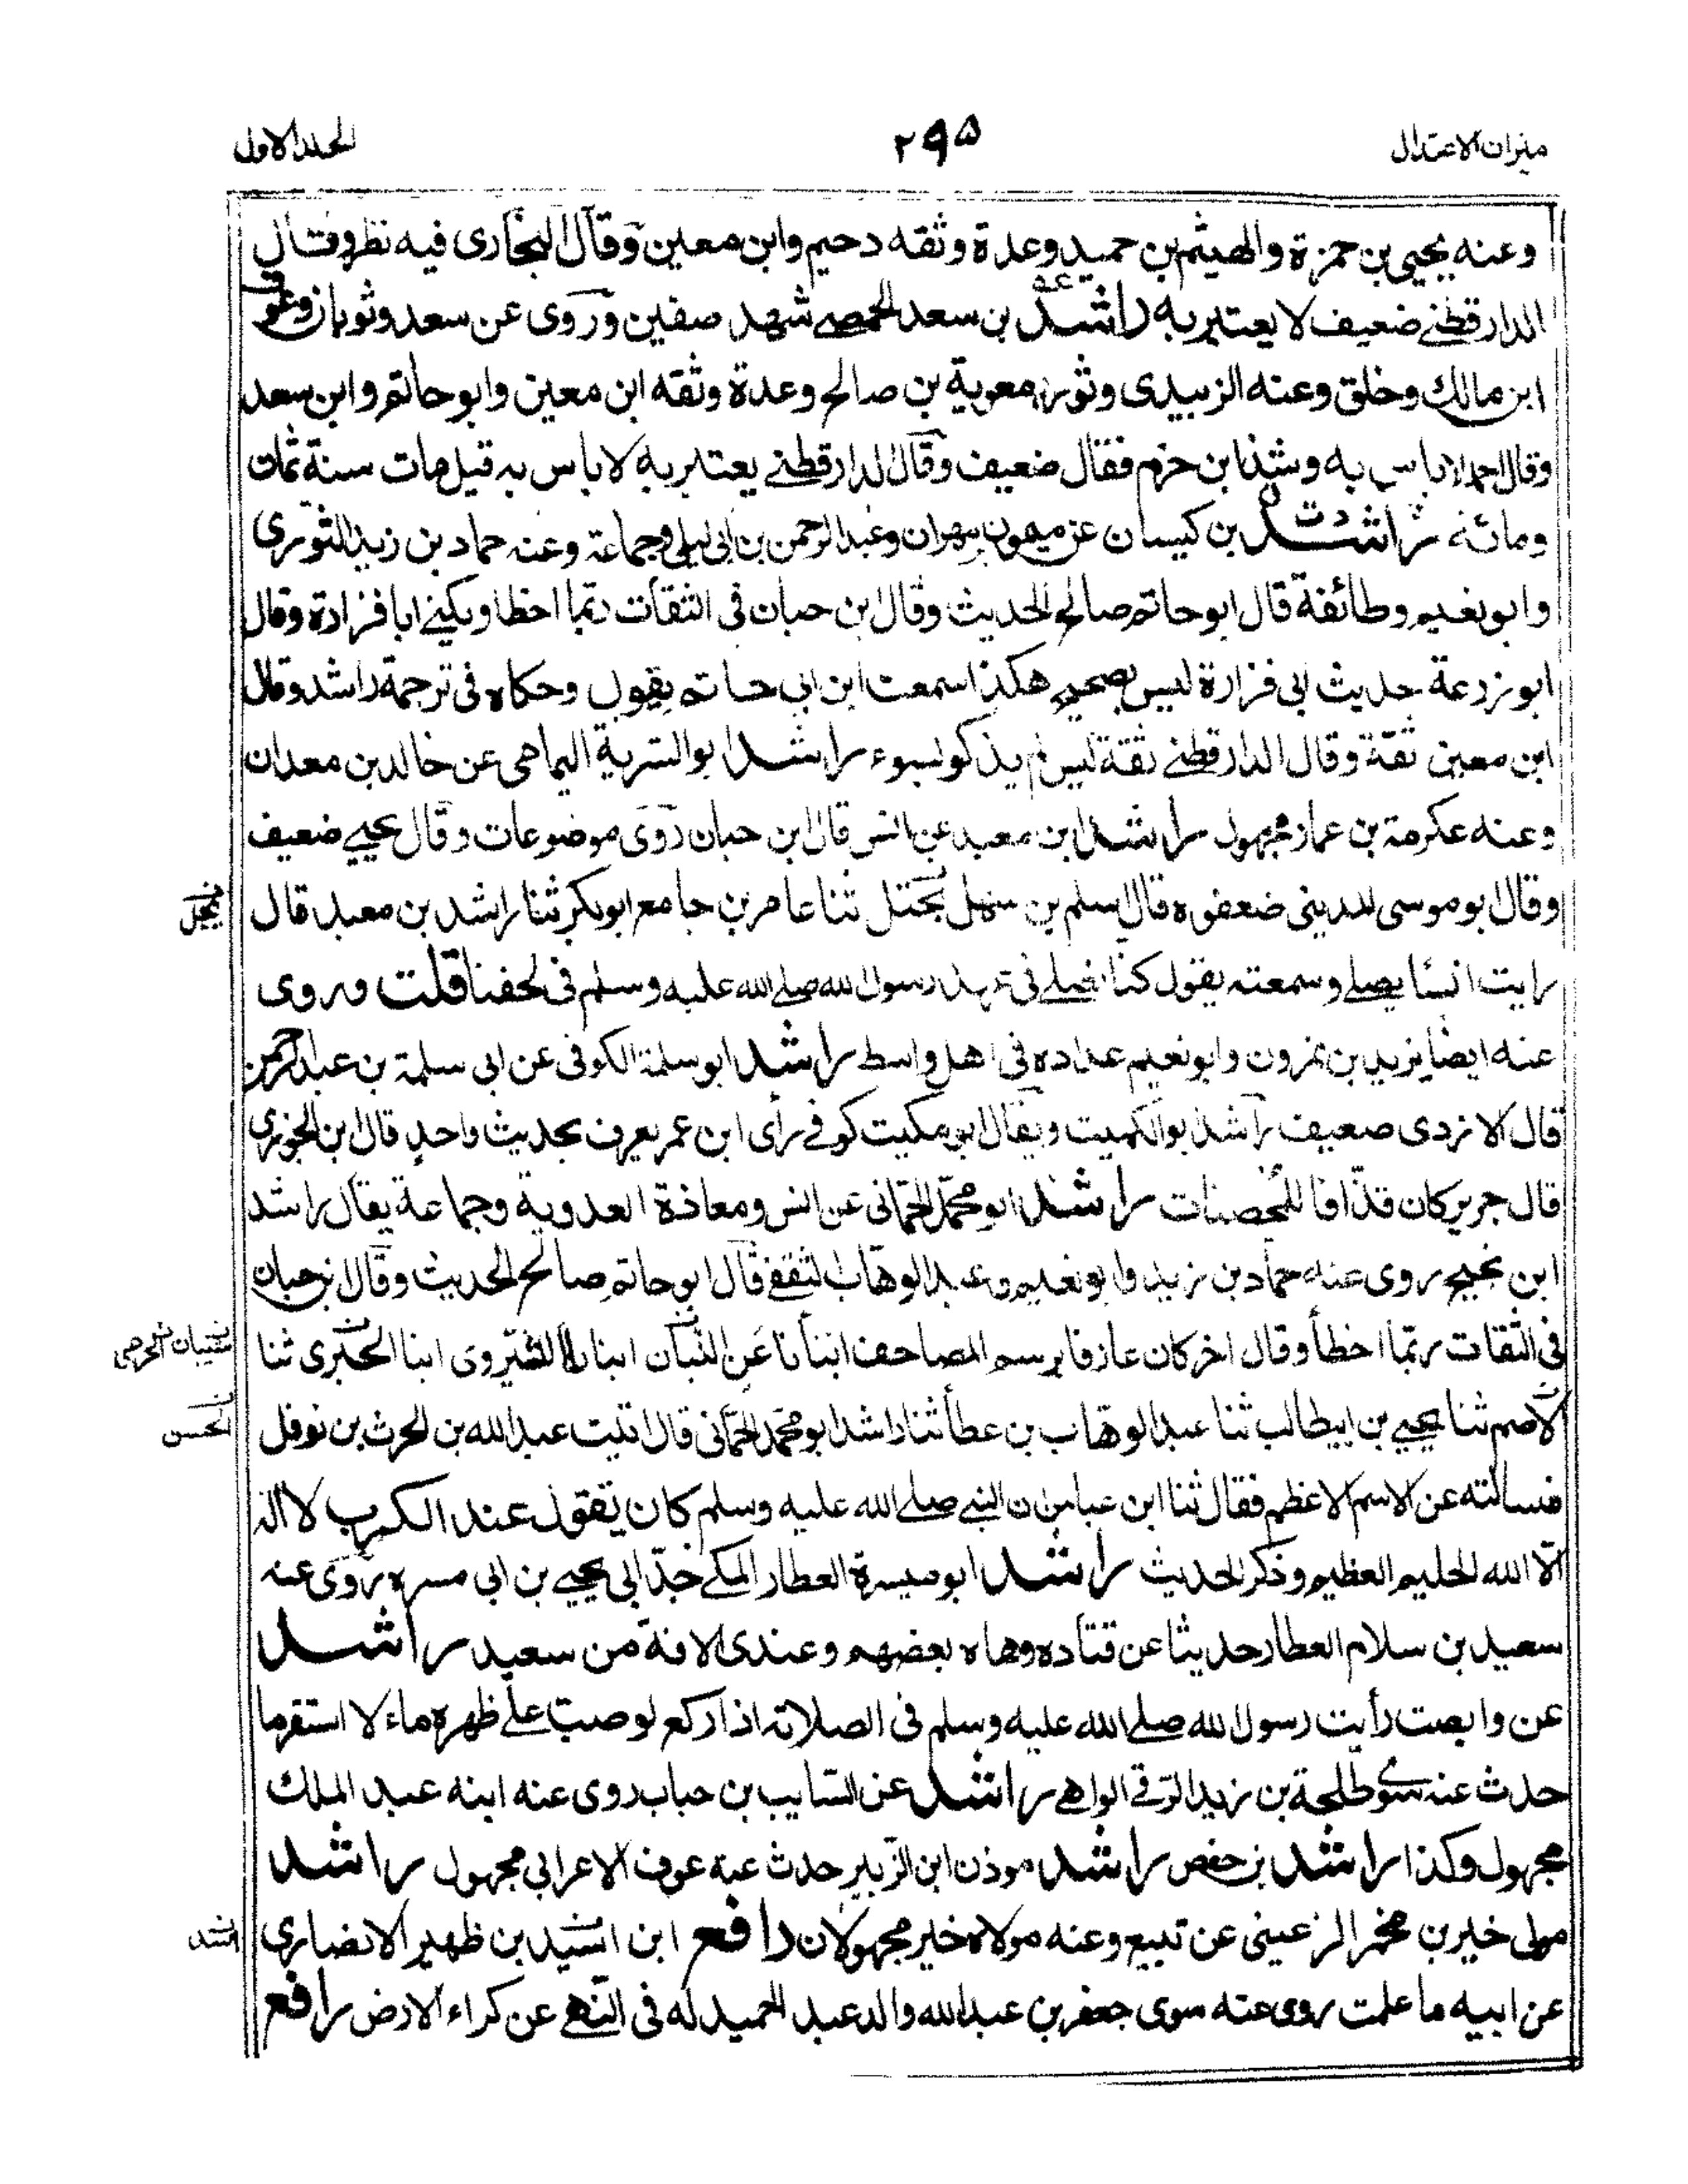 ميزان الاعتدال
۲۹۵
المجلد الاول
وعنه يحيى بن حمزة والهيثم بن حميد وعدة وثقه دحيم وابن معين وقال البخارى فيه نظر وقال
الدارقطنى ضعيف لا يعتبر به راشد بن سعد الحمصى شهد صفين وروى عن سعد وثوبان وعوف
ابن مالك وخلق وعنه الزبيدى وثور ومعوية بن صالح وعدة وثقه ابن معين وابو حاتم وابن سعد
وقال احمد لا باس به وشذ ابن حزم فقال ضعيف وقال الدارقطنى يعتبر به لا باس به قيل مات سنة ثمان
ومائة راشد بن كيسان عن ميمون بن مهران وعبد الرحمن بن ابى ليلى وجماعة وعنه حماد بن زيد والثورى
وابو نعيم وطائفة قال ابو حاتم صالح الحديث وقال ابن حبان فى الثقات ربما اخطا ويكنى ابا فزارة وقال
ابو زرعة حديث ابى فزارة ليس بصحيح هكذا سمعت ابن ابى حاتم يقول وحكاه فى ترجمة راشد وقال
ابن معين ثقة وقال الدارقطنى ثقة ليس لم يذكر لسوء راشد ابو السرية اليمامى عن خالد بن معدان
وعنه عكرمة بن عمار مجهول راشد ابن معبد عن انس قال ابن حبان روى موضوعات وقال يحيى ضعيف
وقال ابو موسى المدينى ضعفوه قال اسلم بن سهل بحتل ثنا عامر بن جامع ابو بكر ثنا راشد بن معبد قال
رايت انسا يصلى وسمعته يقول كنا نصلى فى عهد رسول الله صلى الله عليه وسلم فى لحفنا قلت وروى
عنه ايضا يزيد بن هرون وابو نعيم عداده فى اهل واسط راشد ابو سلمة الكوفى عن ابى سلمة بن عبد الرحمن
قال الازدى ضعيف راشد ابو الكميت ويقال ابو مكيت كوفى رأى ابن عمر يعرف بحديث واحد قال ابن الجوزى
قال جرير كان قذافا للمحصنات راشد ابو محمد الحمانى عن انس ومعاذة العدوية وجماعة يقال راشد
ابن نجيح روى عنه حماد بن زيد وابو نعيم وعبد الوهاب الثقفى قال ابو حاتم صالح الحديث وقال ابن حبان
فى الثقات ربما اخطأ وقال اخر كان عارفا برسم المصاحف انبأنا عن اللبان ابنا الشيروى ابنا الحيرى ثنا
الاصم ثنا يحيى بن ابيطالب ثنا عبد الوهاب بن عطأ ثنا راشد ابو محمد الحمانى قال اتيت عبد الله بن الحرث بن نوفل
فسالته عن الاسم الاعظم فقال ثنا ابن عباس ان النبى صلى الله عليه وسلم كان يقول عند الكرب لا اله
الا الله الحليم العظيم وذكر الحديث راشد ابو ميسرة العطار المكى جد ابى يحيى بن ابى مسره روى عنه
سعيد بن سلام العطار حديثا عن قتاده وهاه بعضهم وعندى الافة من سعيد راشد
عن وابصت رأيت رسول الله صلى الله عليه وسلم فى الصلاته اذا ركع لو صب على ظهره ماء لا استقر ما
حدث عنه سوى طلحة بن زيد الرقى الواهى راشد عن السايب بن خباب روى عنه ابنه عبد الملك
مجهول وكذا راشد بن حفص راشد موذن ابن الزبير حدث عنه عوف الاعرابى مجهول راشد
مولى خير بن مخمر الرعينى عن تبيع وعنه مولاه خير مجهولان رافع ابن اسيد بن ظهير الانصارى
عن ابيه ما علمت روى عنه سوى جعفر بن عبد الله والد عبد الحميد له فى النهى عن كراء الارض رافع
الحسن